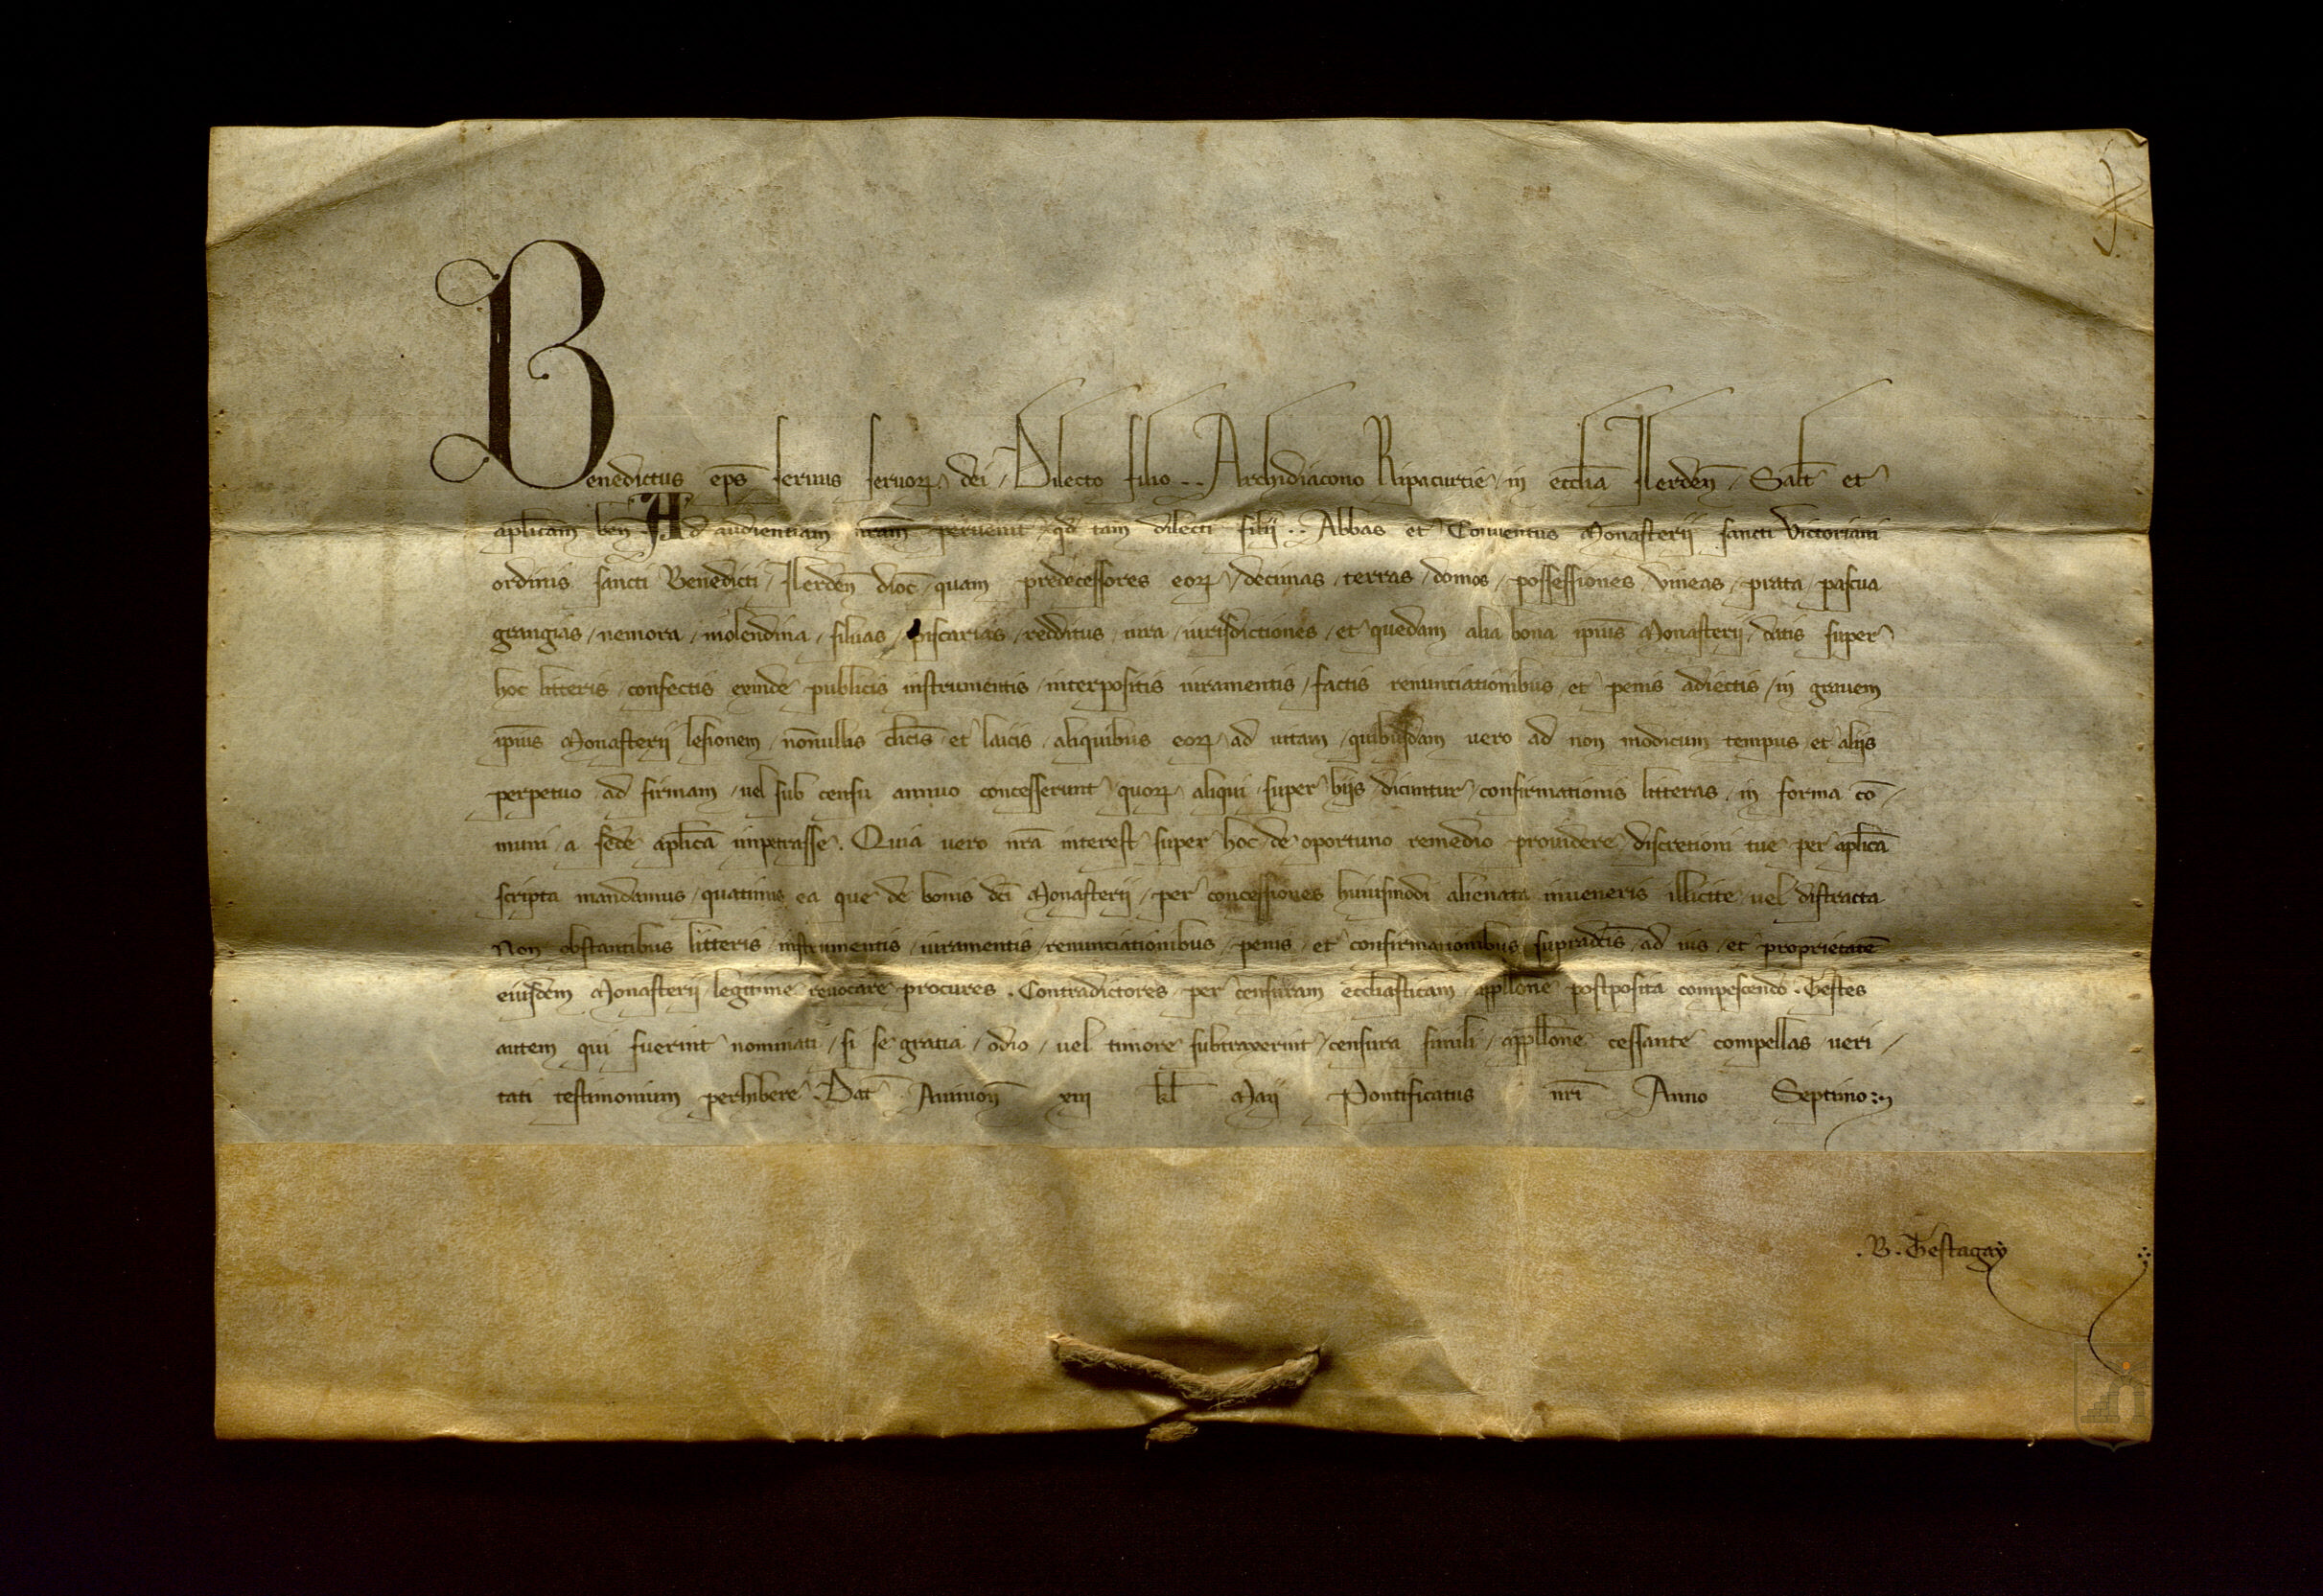 Benedictus ep̄s seruus seruoꝝ dei / Dilecto filio .. Archidiacono Ripacurtie / in eccl̄ia Ilerden̄ / Salt̄ et
apl̄icam ben̄ Ad audientiam nr̄am peruenit / qd̄ tam dilecti filij .. Abbas et Conuentus Monasterij sancti Victoriani
ordinis sancti Benedicti / Ilerden̄ dioc̄ / quam predecessores eoꝝ / decimas / terras / domos / possessiones / vineas / prata / pascua
grangias / nemora / molendina / siluas / piscarias / redditus / iura / iurisdictiones / et quedam alia bona ip̄ius Monasterij / datis super
hoc litteris / confectis exinde publicis instrumentis / interpositis iuramentis / factis renunciationibus / et penis adiectis / in grauem
ip̄ius Monasterij lesionem / nōnullis cl̄icis et laicis / aliquibus eoꝝ ad uitam / quibusdam uero ad non modicum tempus et alijs
perpetuo ad firmam / uel sub censu annuo concesserunt / quoꝝ aliqui super hijs dicuntur confirmationis litteras / in forma cō /
muni / a sede apl̄ica impetrasse . Quia uero nr̄a interest super hoc de oportuno remedio prouidere / discretioni tue per apl̄ica
scripta mandamus / quatinus ea que de bonis dc̄i Monasterij / per concessiones huiusmodi alienata inueneris illicite / uel distracta
Non obstantibus litteris / instrumentis / iuramentis / renunciationibus / penis / et confirmationibus supradc̄is / ad ius / et proprietatē
eiusdem Monasterij legitime reuocare procures . Contradictores per censuram eccl̄iasticam / appell̄one postposita compescendo . Testes
autem qui fuerint nominati / si se gratia / odio / uel timore subtraxerint / censura simili / appell̄one cessante compellas / ueri /
tati testimonium perhibere . Dat̄ Auinion̄ xiii kl̄ Maij Pontificatus nr̄i Anno Septimo :~
. B . Testagay